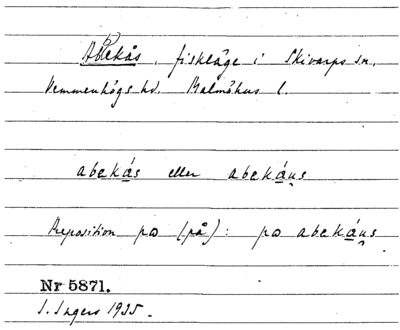 Abekås, fiskläge i Skivarps sn,
Vemmenhögs hd. Malmöhus l.
abekás eller abekáus
Preposition po (på): po abekáus
Nr 5871.
I. Ingers 1935.